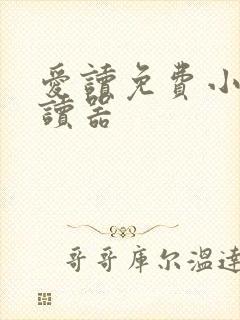 愛讀免費小
讀器
哥哥库尔温達